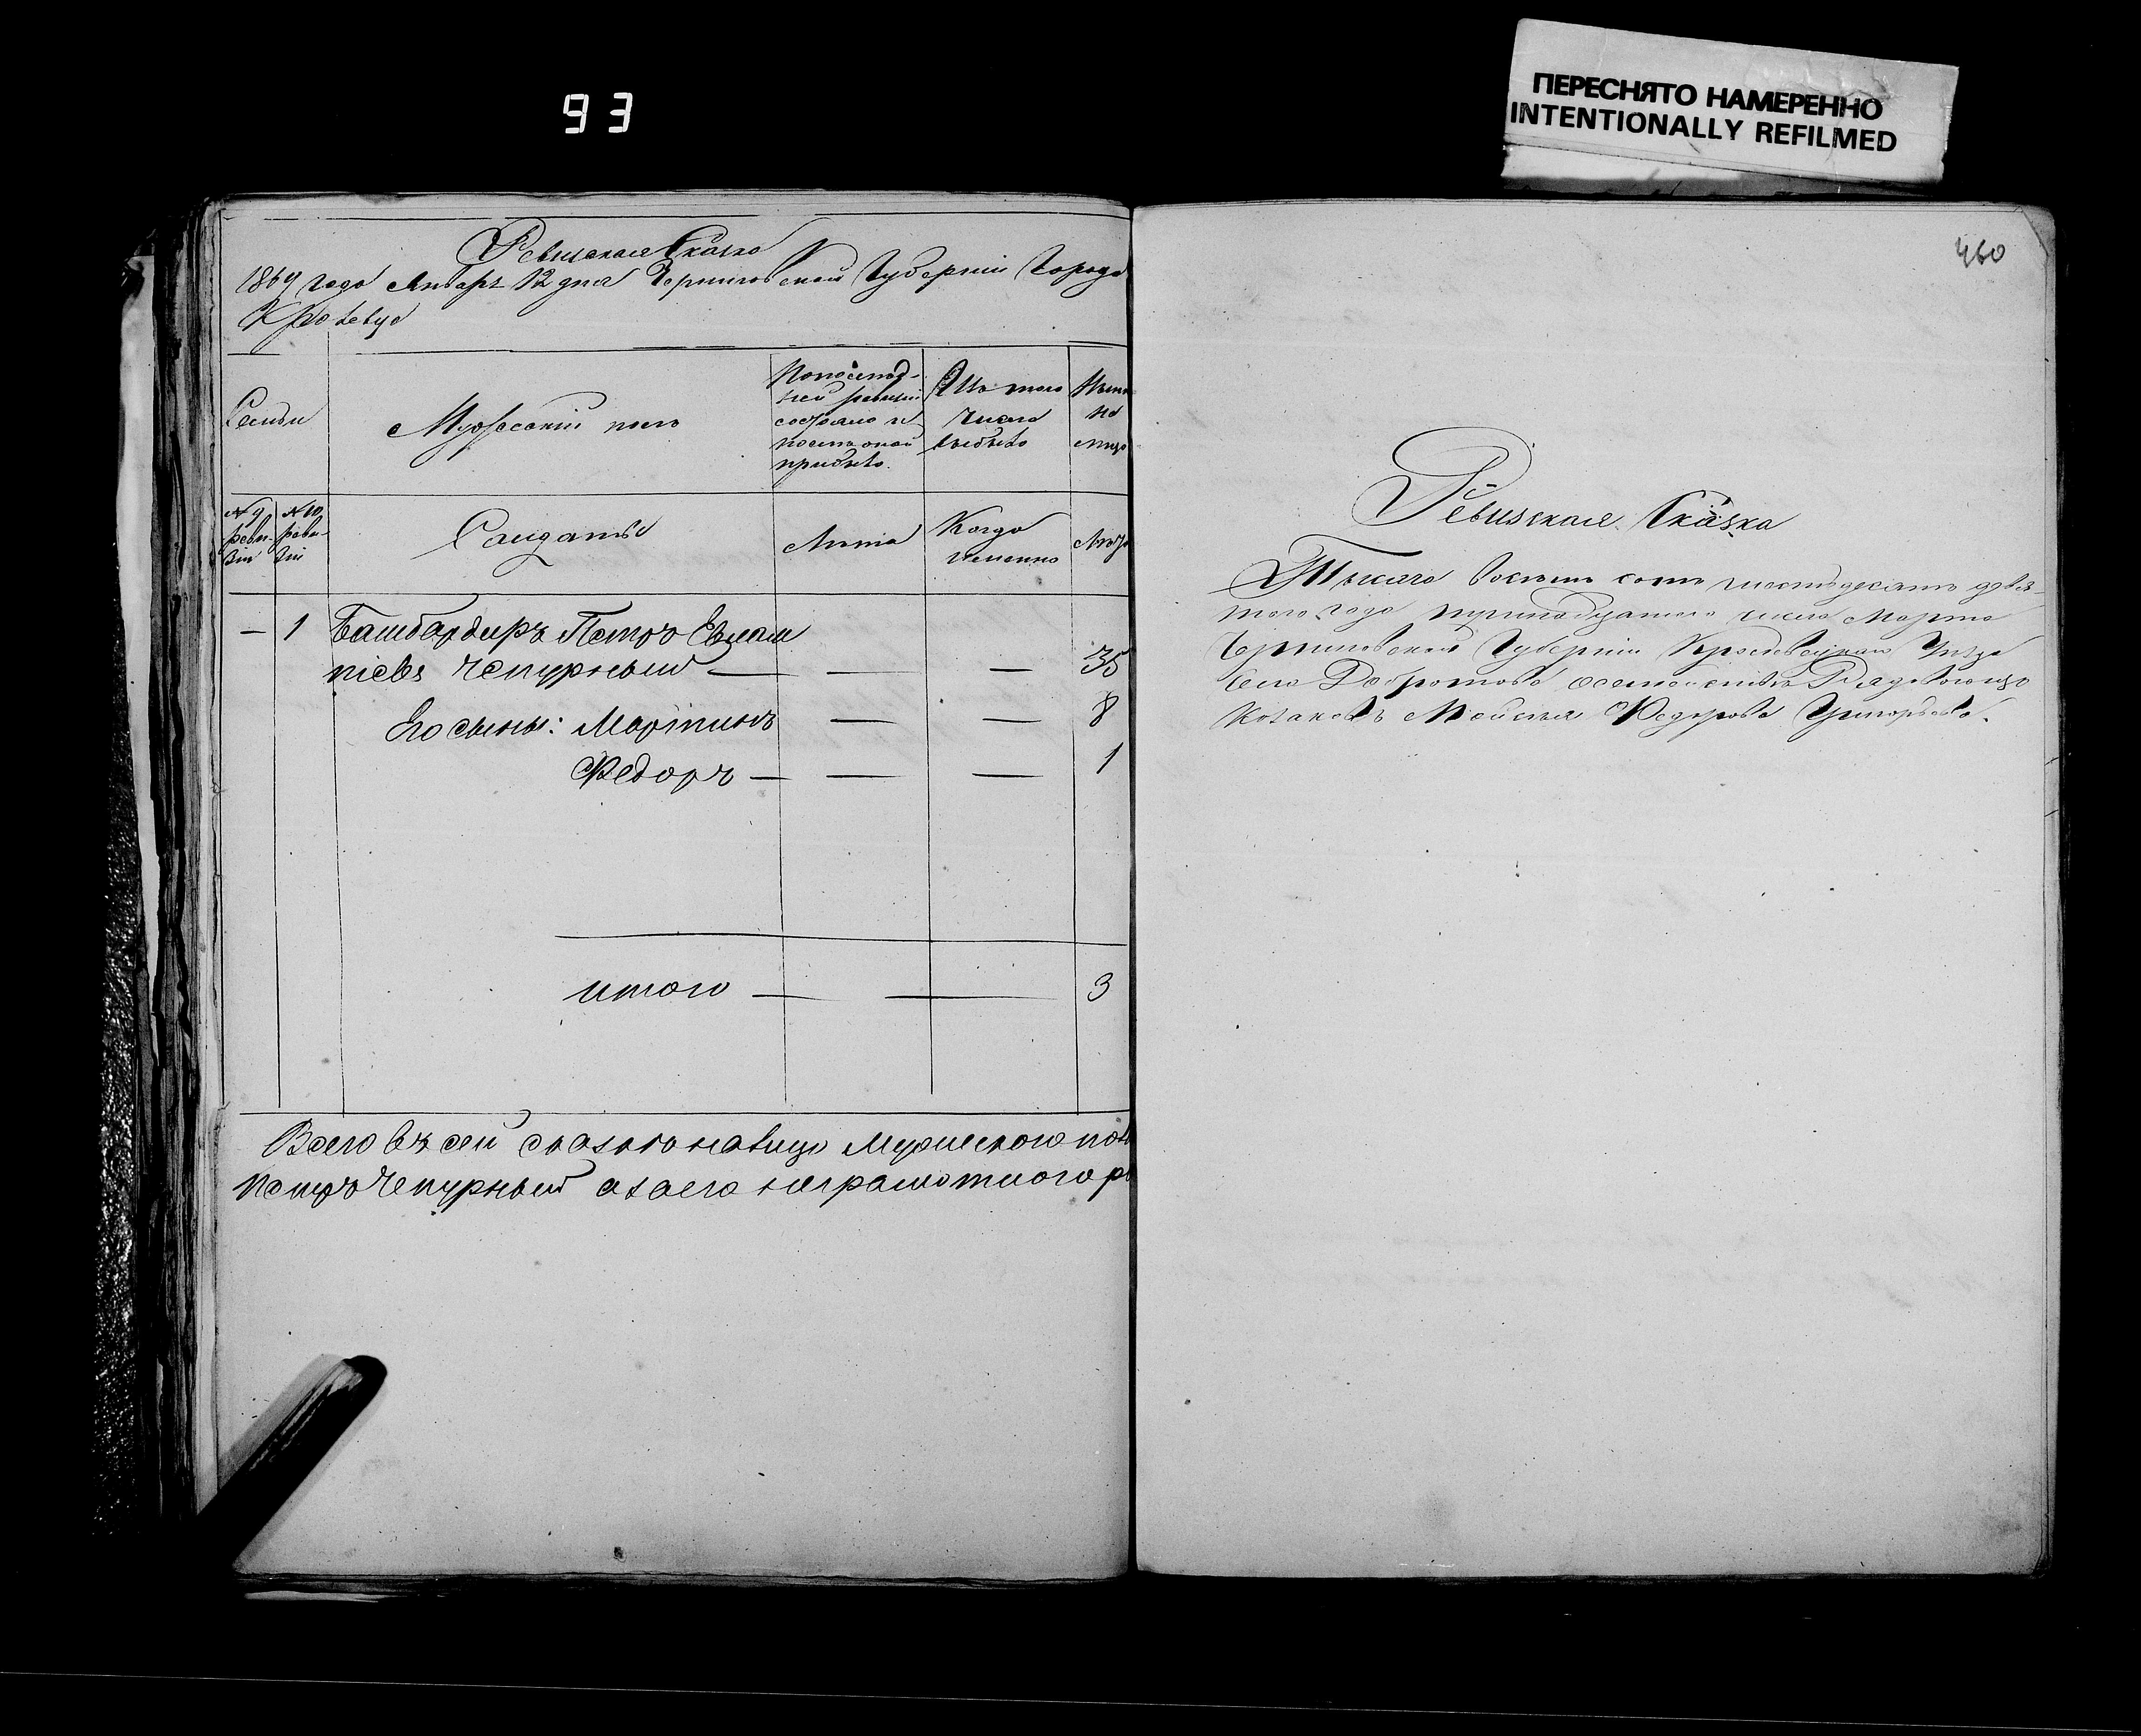 93
ПЕРЕСНЯТО НАМЕРЕННО
INTENTIONALLY REFILMED
Ревизская Сказка
1869 года Января 12 дня Черниговской Губерніи Города
Кролевца
Семьи
Мужескій полъ
По послѣд-
ней ревизіи
состояло и
послѣ оной
прибыло.
Изъ того
числа
выбыло
Нынѣ
на
лицо
№ 9 реви-
зіи
№ 10 реви-
зіи
Солдаты
Лѣта
Когда
именно
Лѣта
— 1 Бамбардиръ Петръ Евлам
піевъ Чепурный — — — 35
Его сыны: Мартинъ — — 8
Федоръ — — — 1
итого — — 3
Всего въ сей сказкѣ на лицо мужескаго пола
Петръ Чепурный а за его неграмотного
460
Ревизская Сказка
Тысяча восемь сотъ шестьдесятъ девя-
того года тринадцатого числа Марта
Черниговской Губерніи Кролевецкаго Уѣзда
Села Добротова о семействѣ Рядового изъ
Козаковъ Мойсея Федорова Григорьева.